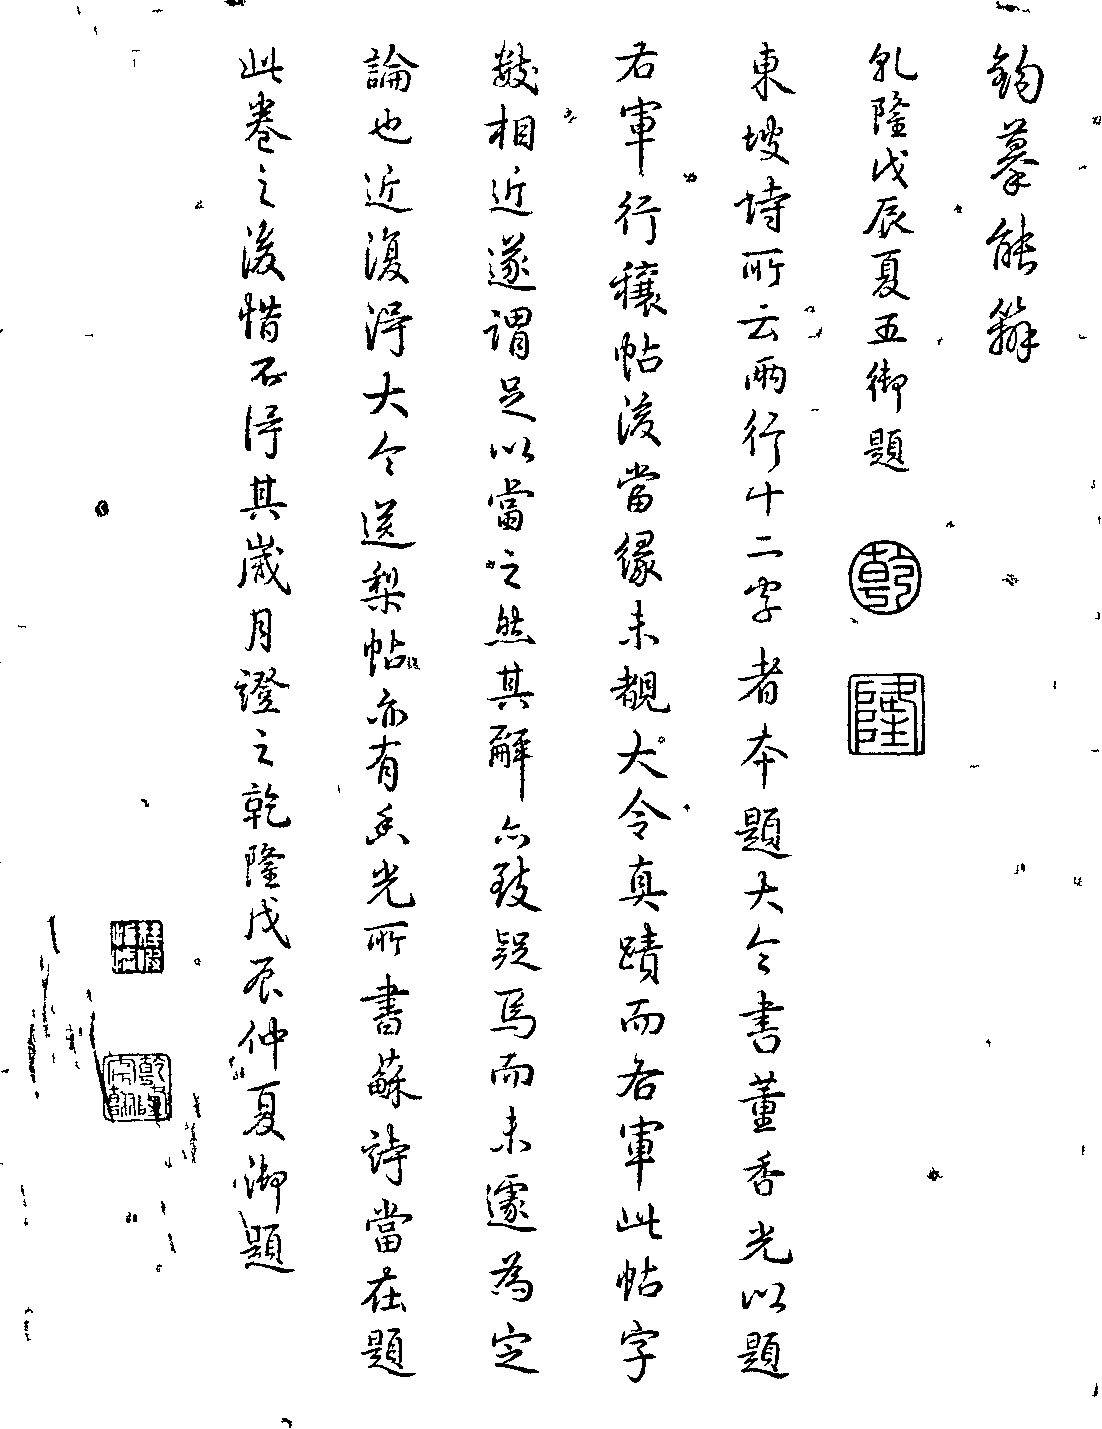 鈎摹能辦
乾隆戊辰夏五御題
乾
隆
東坡詩所云兩行十二字者本題大令書董香光以題
右軍行穰帖後當緣未覩大令真蹟而右軍此帖字
數相近遂謂足以當之然其解亦致疑焉而未遽為定
論也近復得大令送梨帖亦有香光所書蘇詩當在題
此卷之後惜不得其歲月證之乾隆戊辰仲夏御題
乾隆宸翰